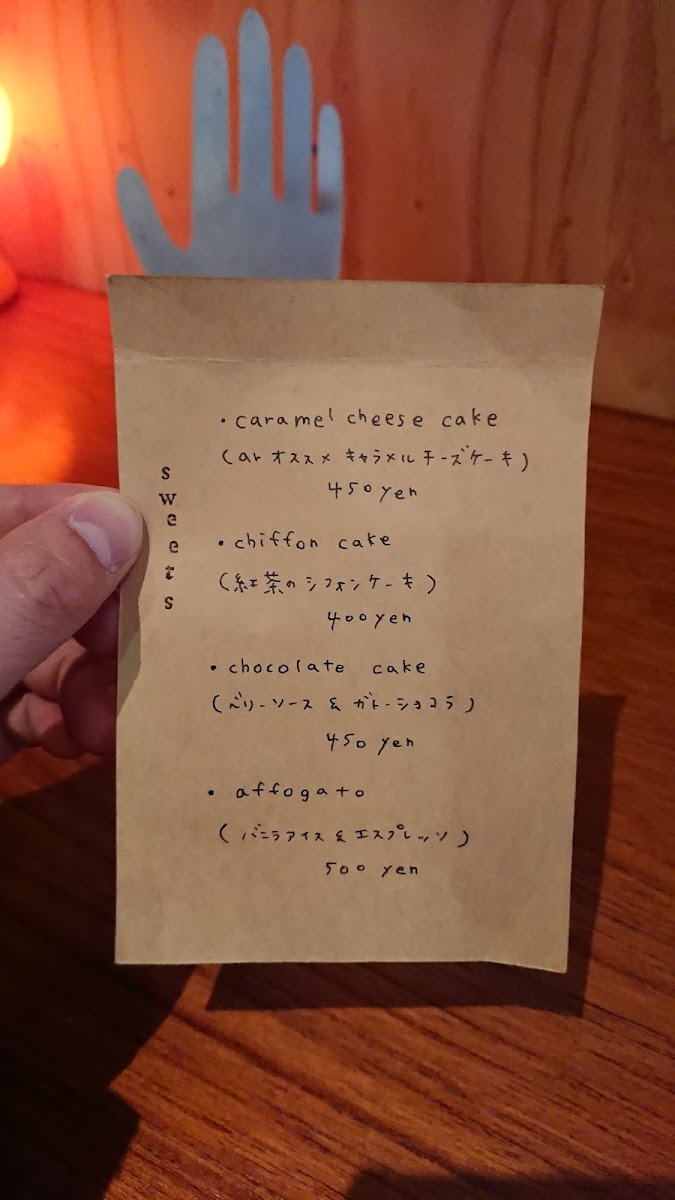 sweets
・caramel cheese cake
(ar オススメ キャラメルチーズケーキ)
450yen
・chiffon cake
(紅茶のシフォンケーキ)
400yen
・chocolate cake
(ベリーソース & ガトーショコラ)
450 yen
・affogato
(バニラアイス & エスプレッソ)
500 yen